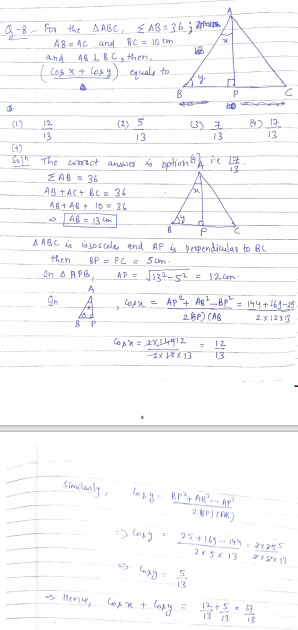 Q-8- For the ΔABC, ΣAB = 36;
AB = AC and BC = 10 cm
and AB ⊥ BC, then,
(cos x + cos y) equals to
A
x
y
B
P
C
10
(1) 12/13 (2) 5/13 (3) 7/13 (4) 17/13
(4)
Solⁿ: The correct answer is option (4) i.e 17/13
ΣAB = 36
AB + AC + BC = 36
AB + AB + 10 = 36
⇒ AB = 13 cm
A
x
y
B P C
ΔABC is isosceles and AP is perpendicular to BC
then BP = PC = 5 cm.
In ΔAPB, AP = √13²-5² = 12 cm.
In
A
B P
, cos x = AP² + AB² - BP² / 2(AP)(AB) = 144 + 169 - 25 / 2 x 12 x 13
cos x = 2 x 144 12 / 2 x 12 x 13 = 12/13
Similarly, cos y = BP² + AB² - AP² / 2(BP)(AB)
⇒ cos y = 25 + 169 - 144 / 2 x 5 x 13 = 2 x 25 5 / 2 x 5 x 13
⇒ cos y = 5/13
⇒ Hence, cos x + cos y = 12/13 + 5/13 = 17/13